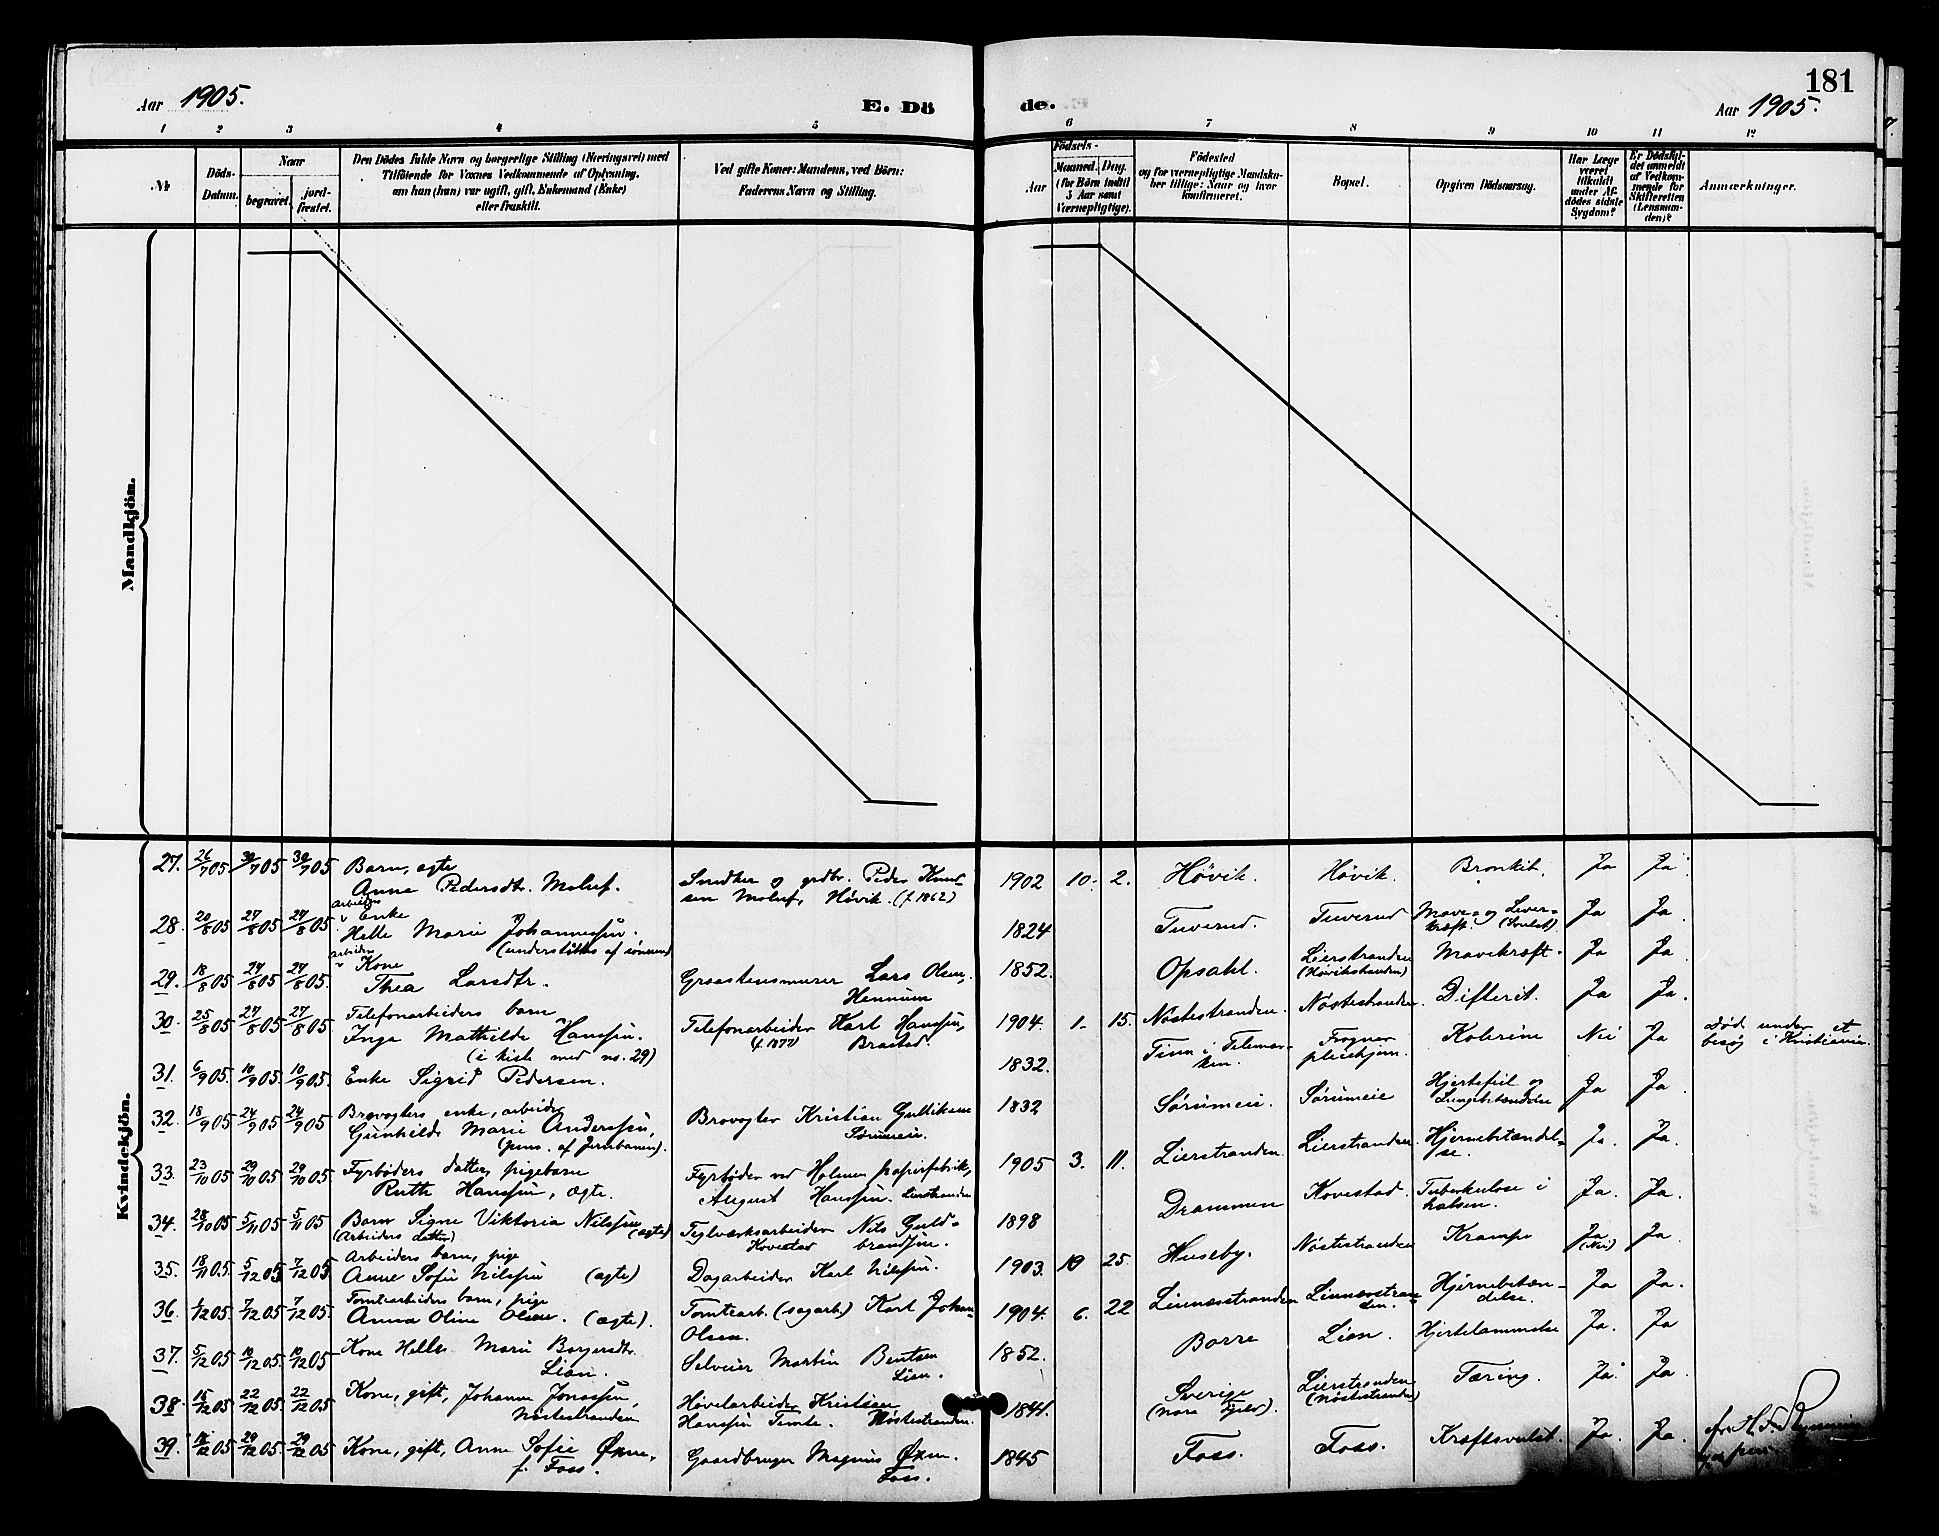 181
Aar 1905. E. Dö
de. Aar 1905.
1 2 3 4 5
6 7 8 9 10 11 12
№
Döds-
Datum.
Naar
begravet.
jord-
fæstet.
Den Dödes fulde Navn og borgerlige Stilling (Næringsvei) med
Tilföiende for Voxnes Vedkommende af Oplysning,
om han (hun) var ugift, gift, Enkemand (Enke)
eller fraskilt.
Ved gifte Koner: Mandens, ved Börn:
Faderens Navn og Stilling.
Födsels-
Aar
Maaned. Dag.
(for Börn indtil
5 Aar samt
Værnepligtige).
Födested
og for værnepligtige Mandska-
ber tillige: Naar og hvor
konfirmeret.
Bopæl.
Opgiven Dödsaarsag.
Har Læge
været
tilkaldt
under Af-
dödes sidste
Sygdom?
Er Dödsfal-
det anmeldt
af Vedkom-
mende for
Skifteretten
(Lensman-
den)?
Anmærkninger.
Mandkjön.
Kvindekjön.
27. 26/7 05 30/7 05 30/7 05 Barn, ægte
Anna Pedersdtr. Moluf.
Snedker og grdbr. Peder Knud-
sen Moluf, Høvik. (f. 1862)
1902 10. 2. Høvik. Høvik. Bronkit. Ja Ja
28. 20/8 05 27/8 05 27/8 05 arbeiders Enke
Helle Marie Johannessen.
(understøttes af sønnen)
1824 Tuverud. Tuverud Mave- og Lever-
kræft. (Svulst). Ja Ja.
29. 18/8 05 27/8 05 27/8 05. arbeider Kone
Thea Larsdtr.
Graastensmurer Lars Olsen,
Hennum
1852. Opsahl. Lierstranden
(Høvikstranden) Mavekræft. Ja Ja.
30. 25/8 05 27/8 05 27/8 05 Telefonarbeiders barn
Inga Mathilde Hanssen,
(i kiste med no. 29)
Telefonarbeider Karl Hanssen,
(f. 1877) Brastad.
1904. 1. 15. Nøstestranden. Nøstestranden. Difterit. Ja Ja.
31. 6/9 05. 10/9 05. 10/9 05. Enke Sigrid Pedersen.
1832. Tinn i Telemar-
ken. Frogner
pleiehjem. Kolerine Nei Ja død under et
besøg i Kristiania.
32. 18/9 05 24/9 05 24/9 05 Brovogters enke, arbeider
Gunhilde Marie Anderssen,
(pens. af Jernbanen).
Brovogter Kristian Gulliksen
Sørumeie.
1832 Sørumeie. Sørumeie Hjertefeil og
Lungebetændelse Ja Ja.
33. 23/10 05 29/10 05 29/10 05. Fyrbøders datter, pigebarn
Ruth Hanssen, ægte.
Fyrbøder ved Holmen papirfabrik,
August Hanssen. Lierstranden
1905 3. 11. Lierstranden. Lierstranden. Hjernebetændel-
se. Ja. Ja.
34. 28/10 05 5/11 05 5/11 05 Barn Signe Viktoria Nilssen
(Arbeiders datter) (ægte)
Teglværksarbeider Nils Guld-
Kovestad brandsen.
1898 Drammen Kovestad. Tuberkulose i
halsen. Ja. Ja.
35. 18/11 05. 5/12 05 7/12 05 Arbeiders barn, pige
Anne Sofie Nilssen (ægte)
Dagarbeider Karl Nilssen.
1903. 10 25. Huseby. Nøstestranden Krampe Ja
(Nei) Ja.
36. 1/12 05 7/12 05 7/12 05 Tomtearbeiders barn, pige
Anna Oline Olsen. (ægte).
Tomtearb. (sagarb.) Karl Johan
Olsen.
1904. 6. 22 Linnesstranden Linnesstran-
den. Hjernebetæn-
delse. Ja Ja.
37. 5/12 05 10/12 05. 10/12 05 Kone Helle Marie Borgersdtr.
Lian.
Selveier Martin Bentsen
Lian.
1852. Borre Lian. Hjertelammelse Ja. Ja
38. 15/12 05 22/12 05. 22/12 05 Kone, gift, Johanne Jonassen,
Nøstestranden
Høvelarbeider Kristian
Hanssen Tomte. Nøstestranden.
1841. Sverige Lierstranden
(nøstestranden) Tæring. Ja. Ja.
39. 29/12 05. 29/12 05 Kone, gift, Anne Sofie Økern,
f. Foss.
Gaardbruger Magnus Økern.
Foss.
1845 Foss. Foss. Kræftsvulst. Ja. Ja.